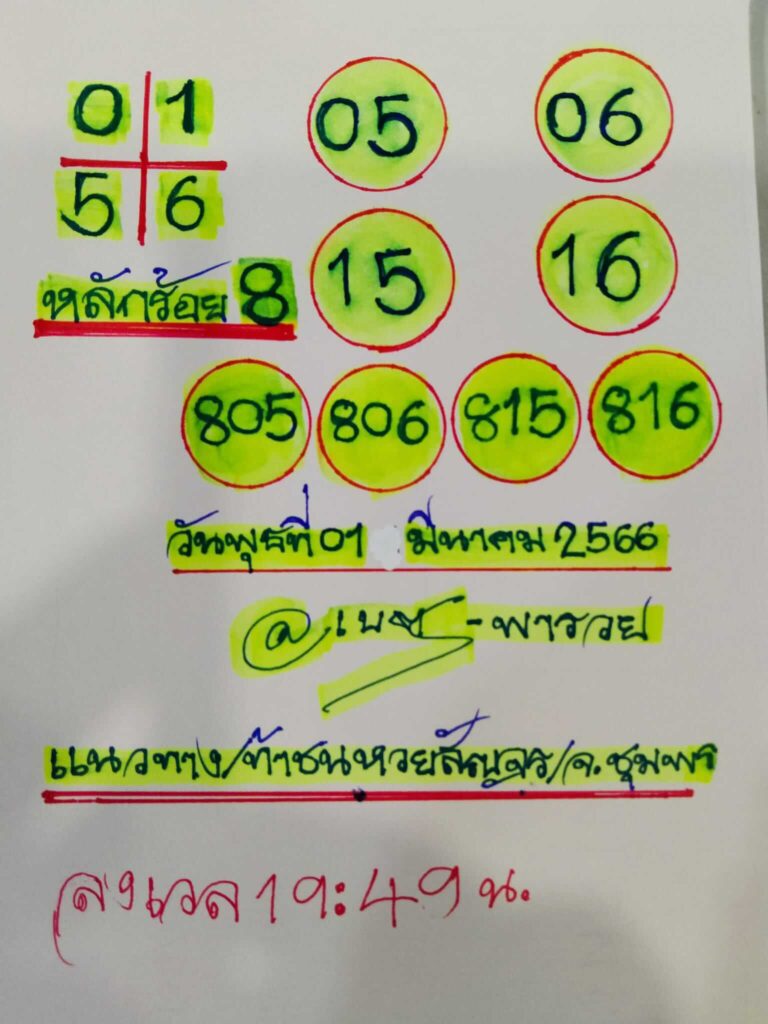 0 1
5 6
05 06
หลักร้อย 8
15 16
805 806 815 816
วันพุธที่ 01 มีนาคม 2566
@เบส - พารวย
แนวทาง/ท้าชนหวยสัญจร/จ.ชุมพร
ลงเวล 19:49 น.